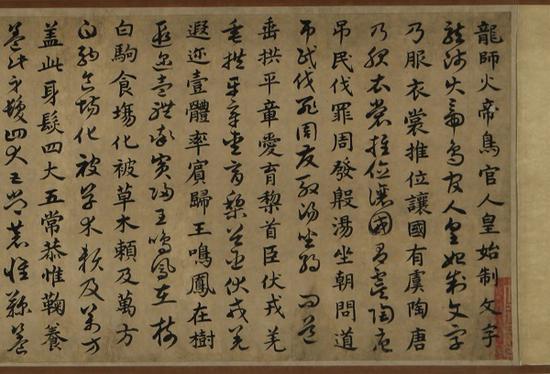 龍師火帝鳥官人皇始制文字
龍師火帝鳥官人皇始制文字
乃服衣裳推位讓國有虞陶唐
乃服衣裳推位讓國有虞陶唐
吊民伐罪周發殷湯坐朝問道
吊民伐罪周發殷湯坐朝問道
垂拱平章愛育黎首臣伏戎羌
垂拱平章愛育黎首臣伏戎羌
遐迩壹體率賓歸王鳴鳳在樹
遐迩壹體率賓歸王鳴鳳在樹
白駒食場化被草木賴及萬方
白駒食場化被草木賴及萬方
蓋此身髮四大五常恭惟鞠養
蓋此身髮四大五常恭惟鞠養